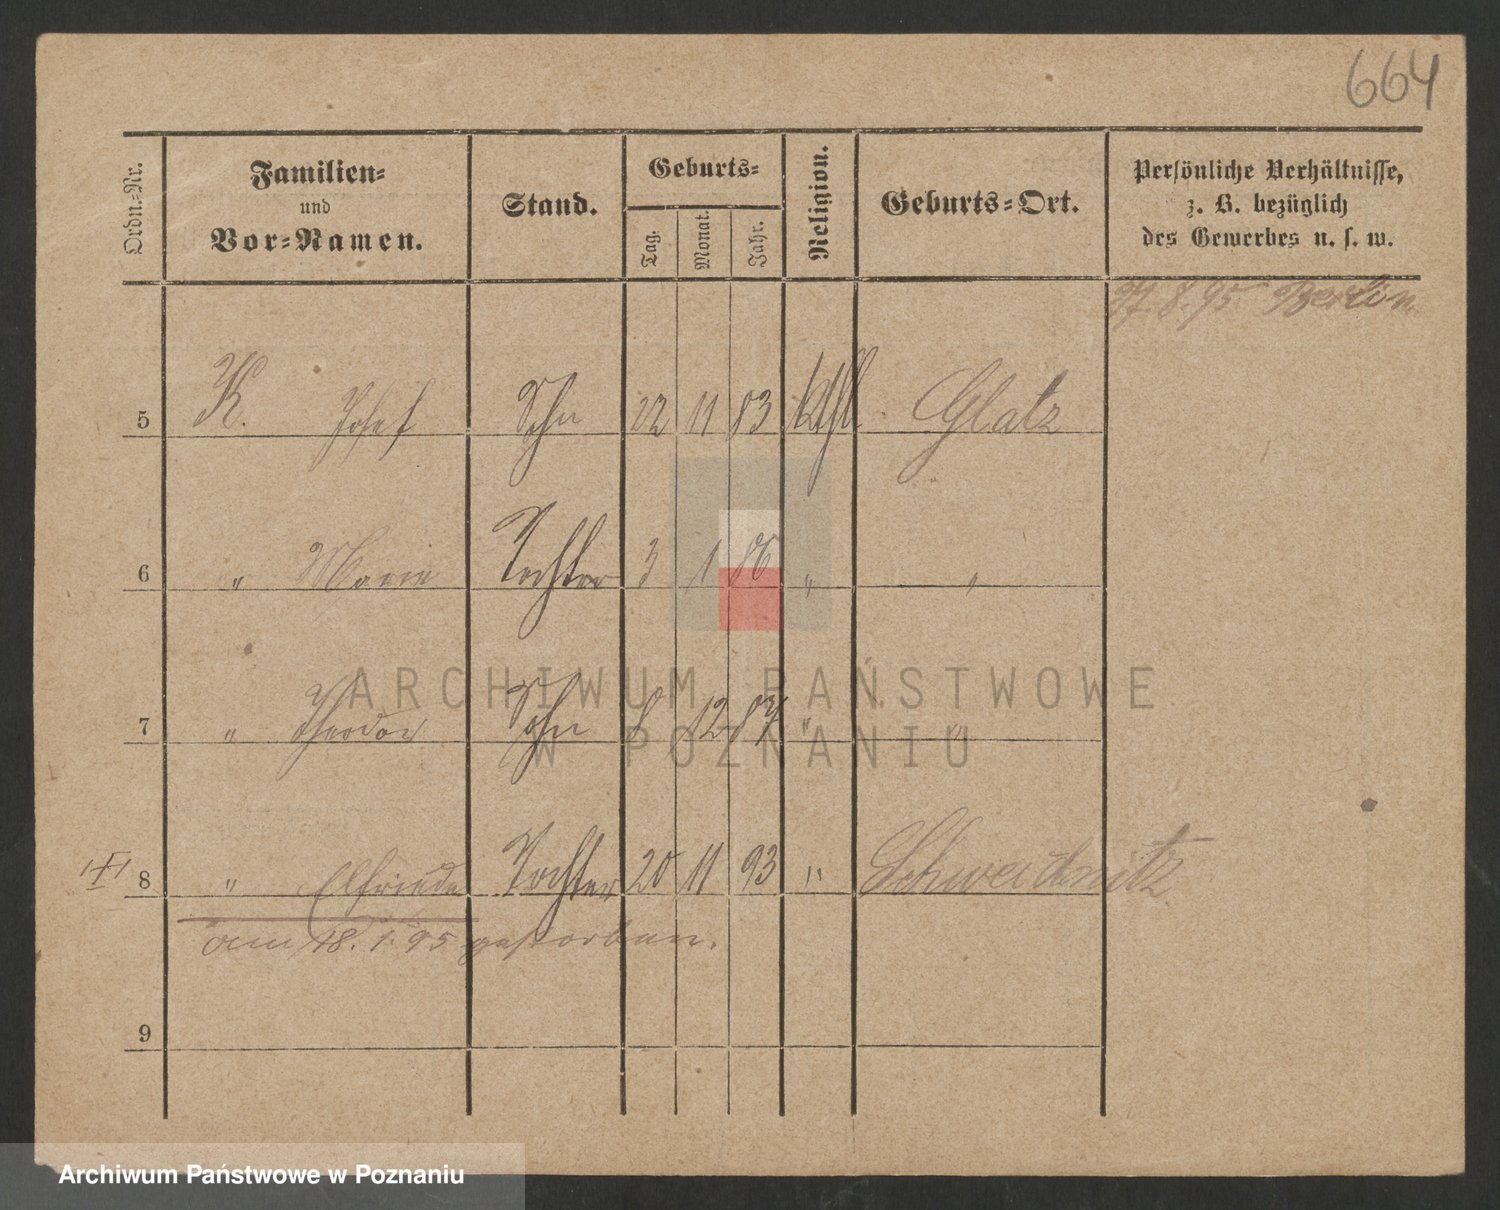 664
Ordn.-Nr. Familien- und Vor-Namen. Stand. Geburts- Tag. Monat. Jahr. Religion. Geburts-Ort. Persönliche Verhältnisse, z. B. bezüglich des Gewerbes u. s. w.
8.95 Berlin
5 K. Josef Sohn 22 11 83 kath. Glatz
6 " Marie Tochter 3 1 86 " "
7 " Theodor Sohn 8 12 87 " "
8 " Elfriede Tochter 20 11 93 " Schweidnitz
am 18.1.95 gestorben.
9
ARCHIWUM PAŃSTWOWE
W POZNANIU
Archiwum Państwowe w Poznaniu